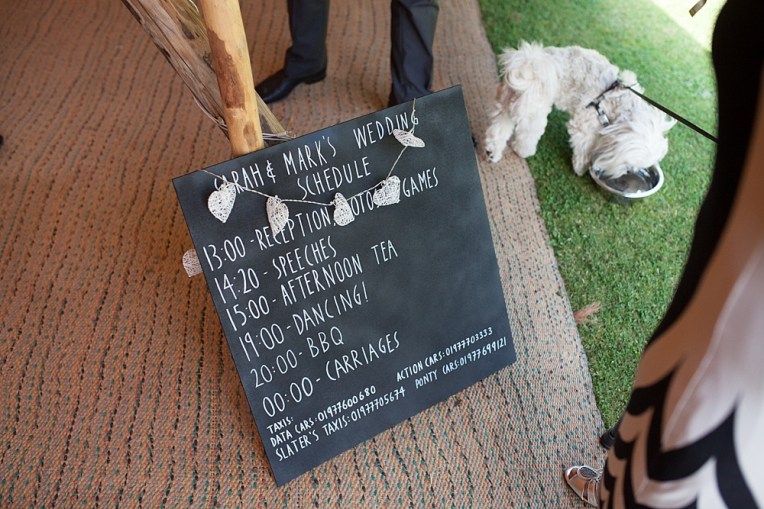 ARAH & MARK'S WEDDING
SCHEDULE
13:00 - RECEPTION GAMES
14:20 - SPEECHES
15:00 - AFTERNOON TEA
19:00 - DANCING!
20:00 - BBQ
00:00 - CARRIAGES
TAXIS:
DATA CARS: 01977600680 ACTION CARS: 01977703333
SLATER'S TAXIS: 01977705674 PONTY CARS: 01977699121